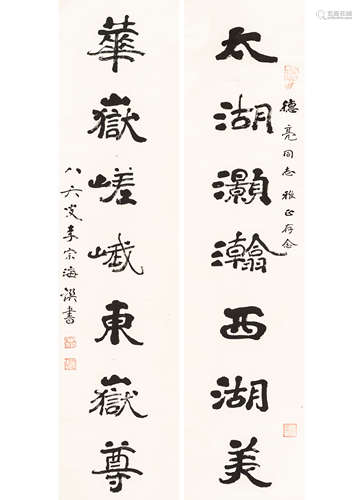 太湖灝瀚西湖美
德亮同志雅正存念
華嶽嵯峨東嶽尊
八六叟李宗海譔書